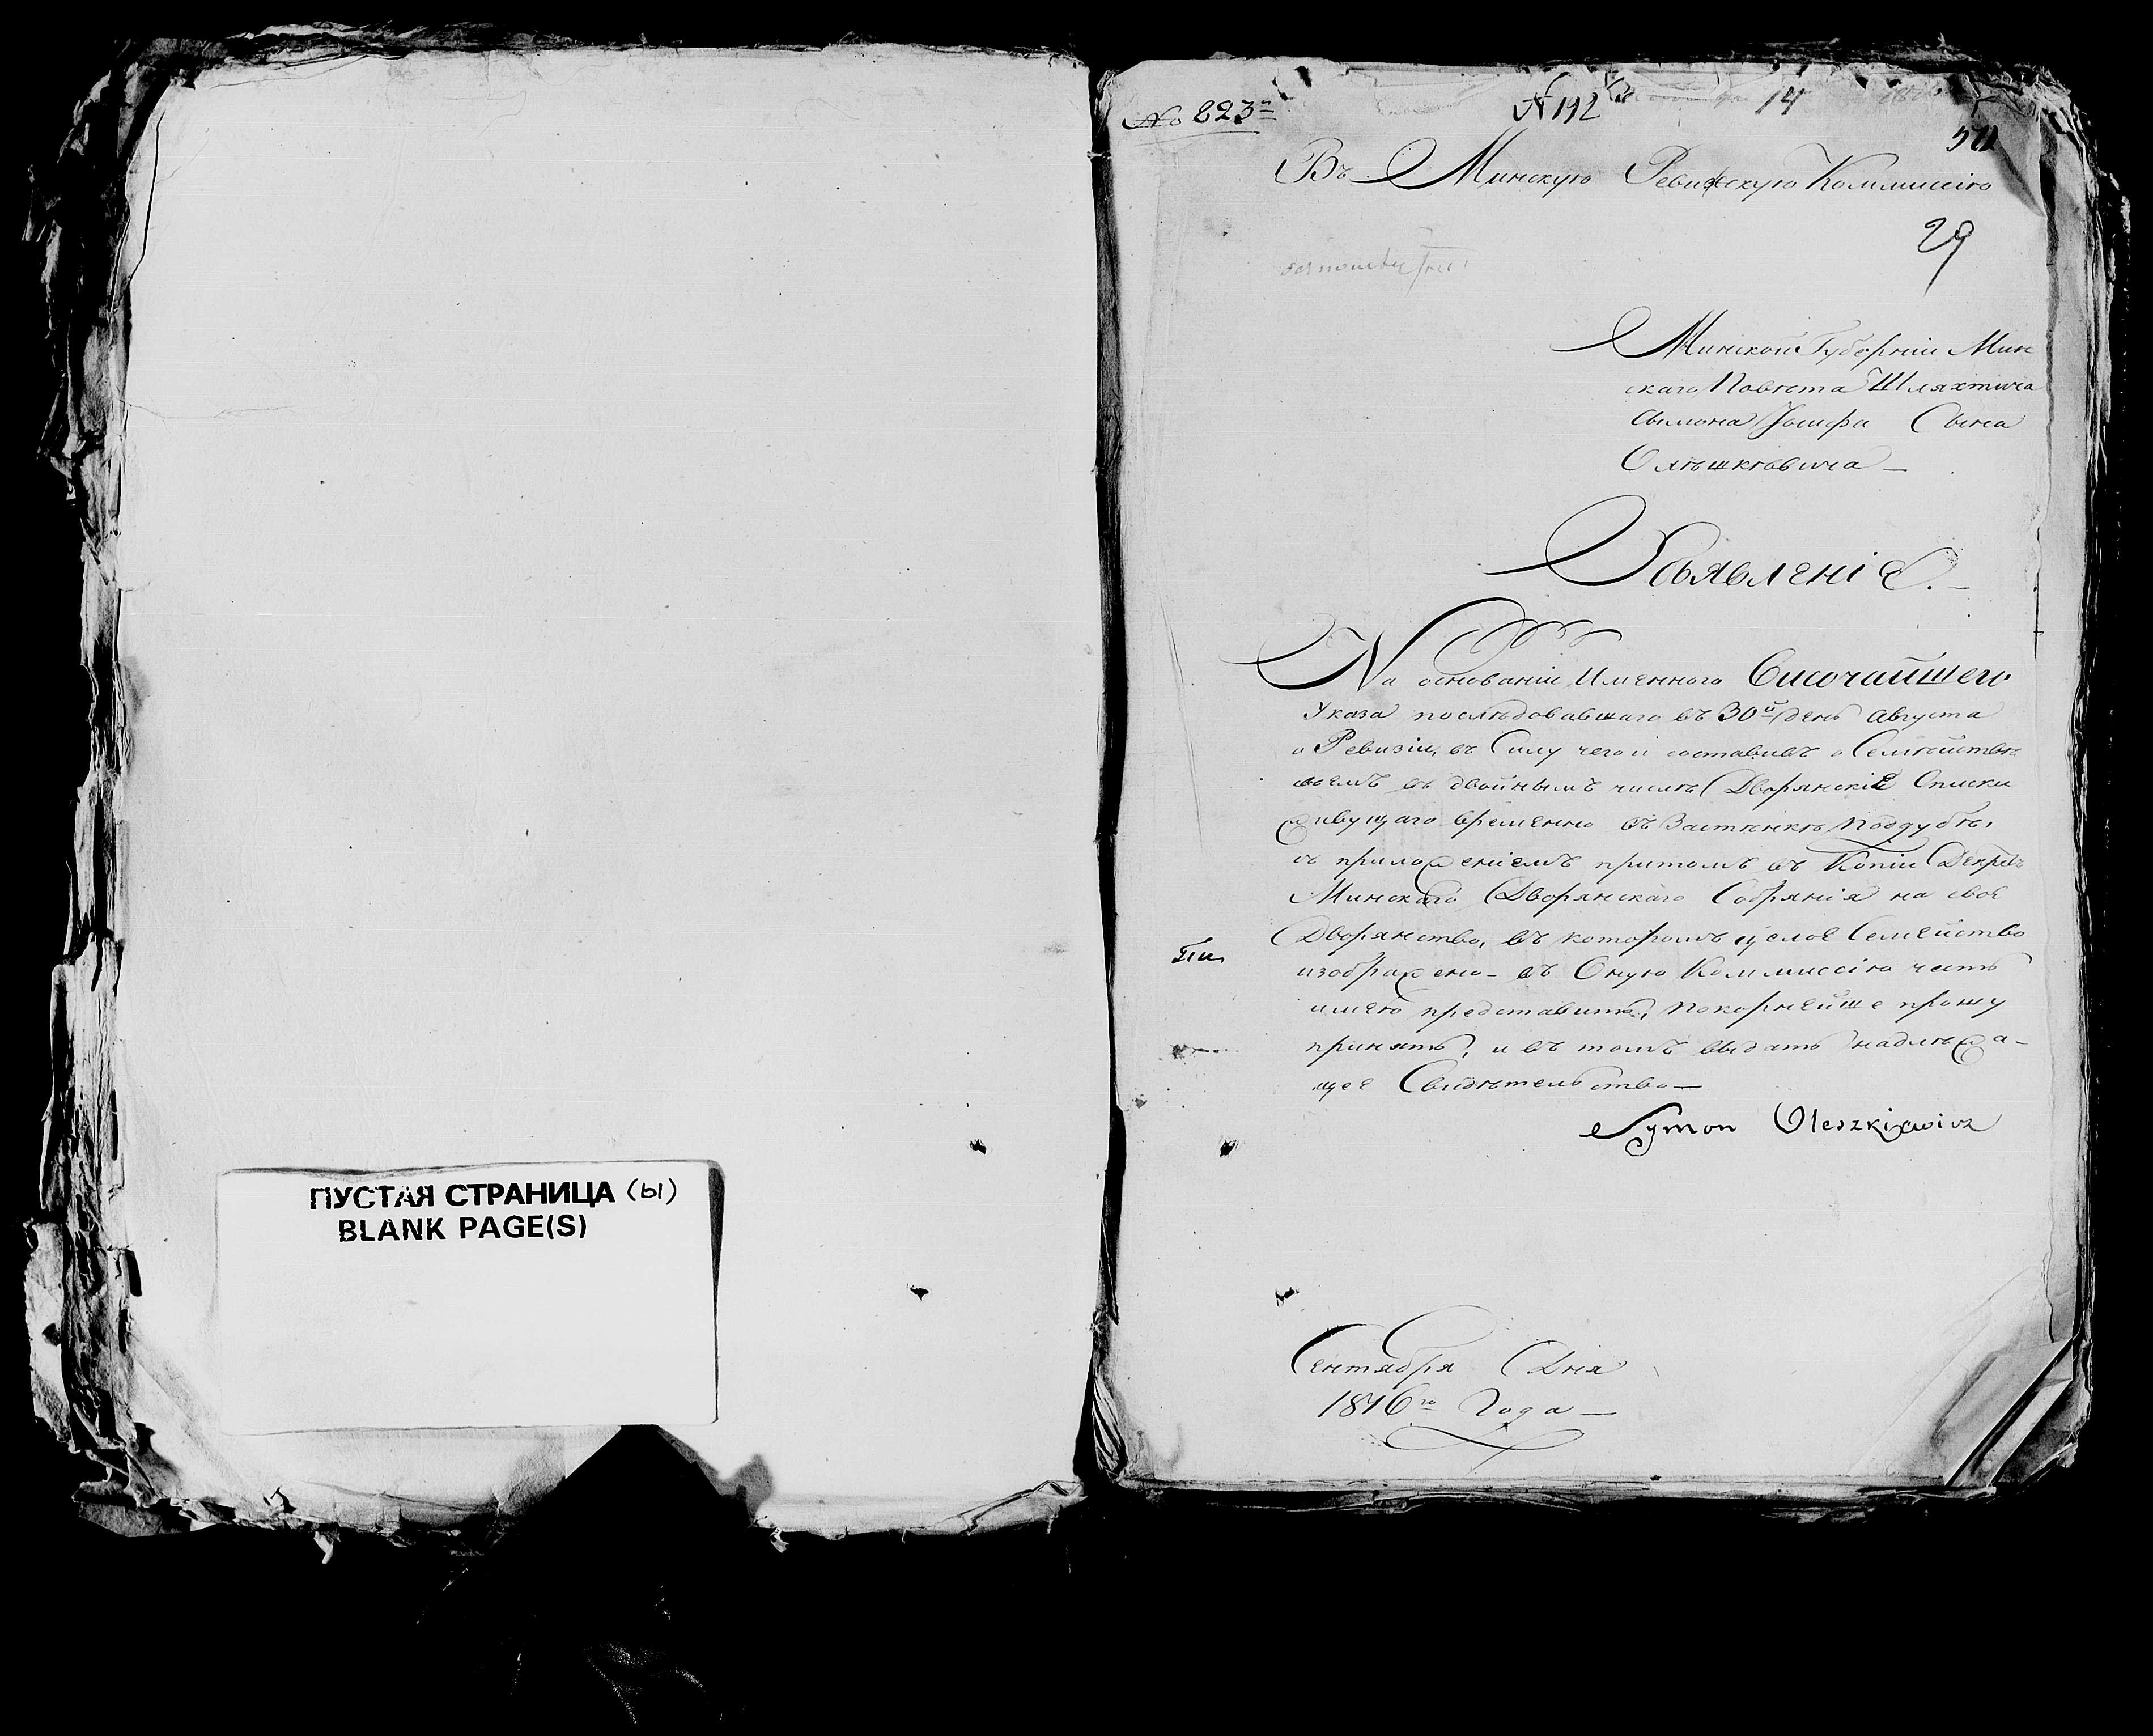 ПУСТАЯ СТРАНИЦА (ы)
BLANK PAGE(S)
№ 823
№ 192
14
Въ Минскую Ревизскую Коммиссію
29
Минской Губерніи Мин
скаго Повѣта Шляхтича
Сымона Іосифа Сына
Олѣшкѣвича —
Объявленіе. —
На основаніи Именного Височайшего
Указа послѣдовавшаго въ 30й день Августа
о Ревизіи, въ Силу чего и составивъ о Семѣйствѣ
своемъ въ двойнымъ числѣ Дворянскіе Списки
живущаго временно въ Застѣнкѣ Поддубѣ,
съ приложеніемъ притомъ въ Копіи
Минскаго Дворянскаго Собрянія на свое
Дворянство, въ которомъ целое Семейство
изображено — въ Оную Коммиссію честь
имею представить, покорнейше прошу
принять, и въ томъ выдать надлѣжа-
щее Свидѣтельство —
Symon Oleszkiewicz
Сентября Дня
1816го Года —